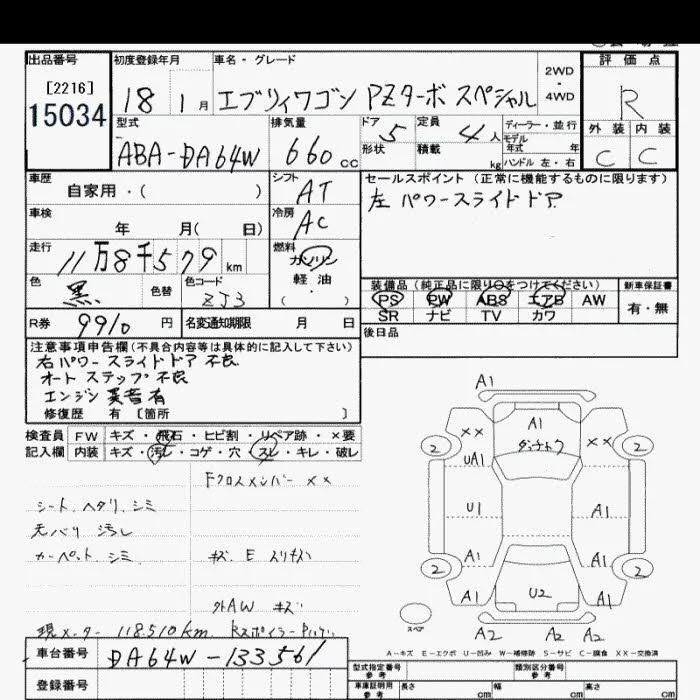 出品番号
[2216]
15034
初度登録年月
18 1 月
車名・グレード
エブリィワゴン PZターボ スペシャル
2WD
・
4WD
評 価 点
R
外 装 内 装
C C
型式
ABA-DA64W
排気量
660 cc
ドア 5
定員 4 人
形状
積載 kg
ディーラー・並行
モデル
年式 年
ハンドル 左・右
車歴
自家用・( )
シフト
AT
車検
年 月( 日)
冷房
AC
走行
11万8千579 km
燃料
ガソリン
軽 油
( )
色
黒
色替
色コード
ZJ3
R券 9910 円
名変通知期限 月 日
セールスポイント (正常に機能するものに限ります)
左 パワースライドドア
装備品 (純正品に限り○をつけてください)
PS PW ABS エアB AW
SR ナビ TV カワ
新車保証書
有・無
後日品
注意事項申告欄(不具合内容等は具体的に記入して下さい)
右パワースライドドア 不良
オートステップ 不良
エンジン 異音有
修復歴 有 〔箇所 〕
検査員
記入欄
FW キズ・飛石・ヒビ割・リペア跡・×要
内装 キズ・汚レ・コゲ・穴・スレ・キレ・破レ
Fクロスメンバー ××
シート、ヘタリ、シミ
天バリ 汚レ
カーペット、シミ
キズ E スリキズ
外AW キズ
現メーター 118,510km
車台番号 DA64W-133561
登録番号
A1
×× A1 ××
ダッチャク
2 2
UA1
U1 A1
A1 A1
2 2
A1 U2 A1
スペア
A2 A2 A2
A-キズ E-エクボ U-凹み W-補修跡 S-サビ C-腐食 XX-交換済
型式指定番号
参考
類別区分番号
参考
車庫証明用
参考
長さ cm 幅 cm 高さ cm